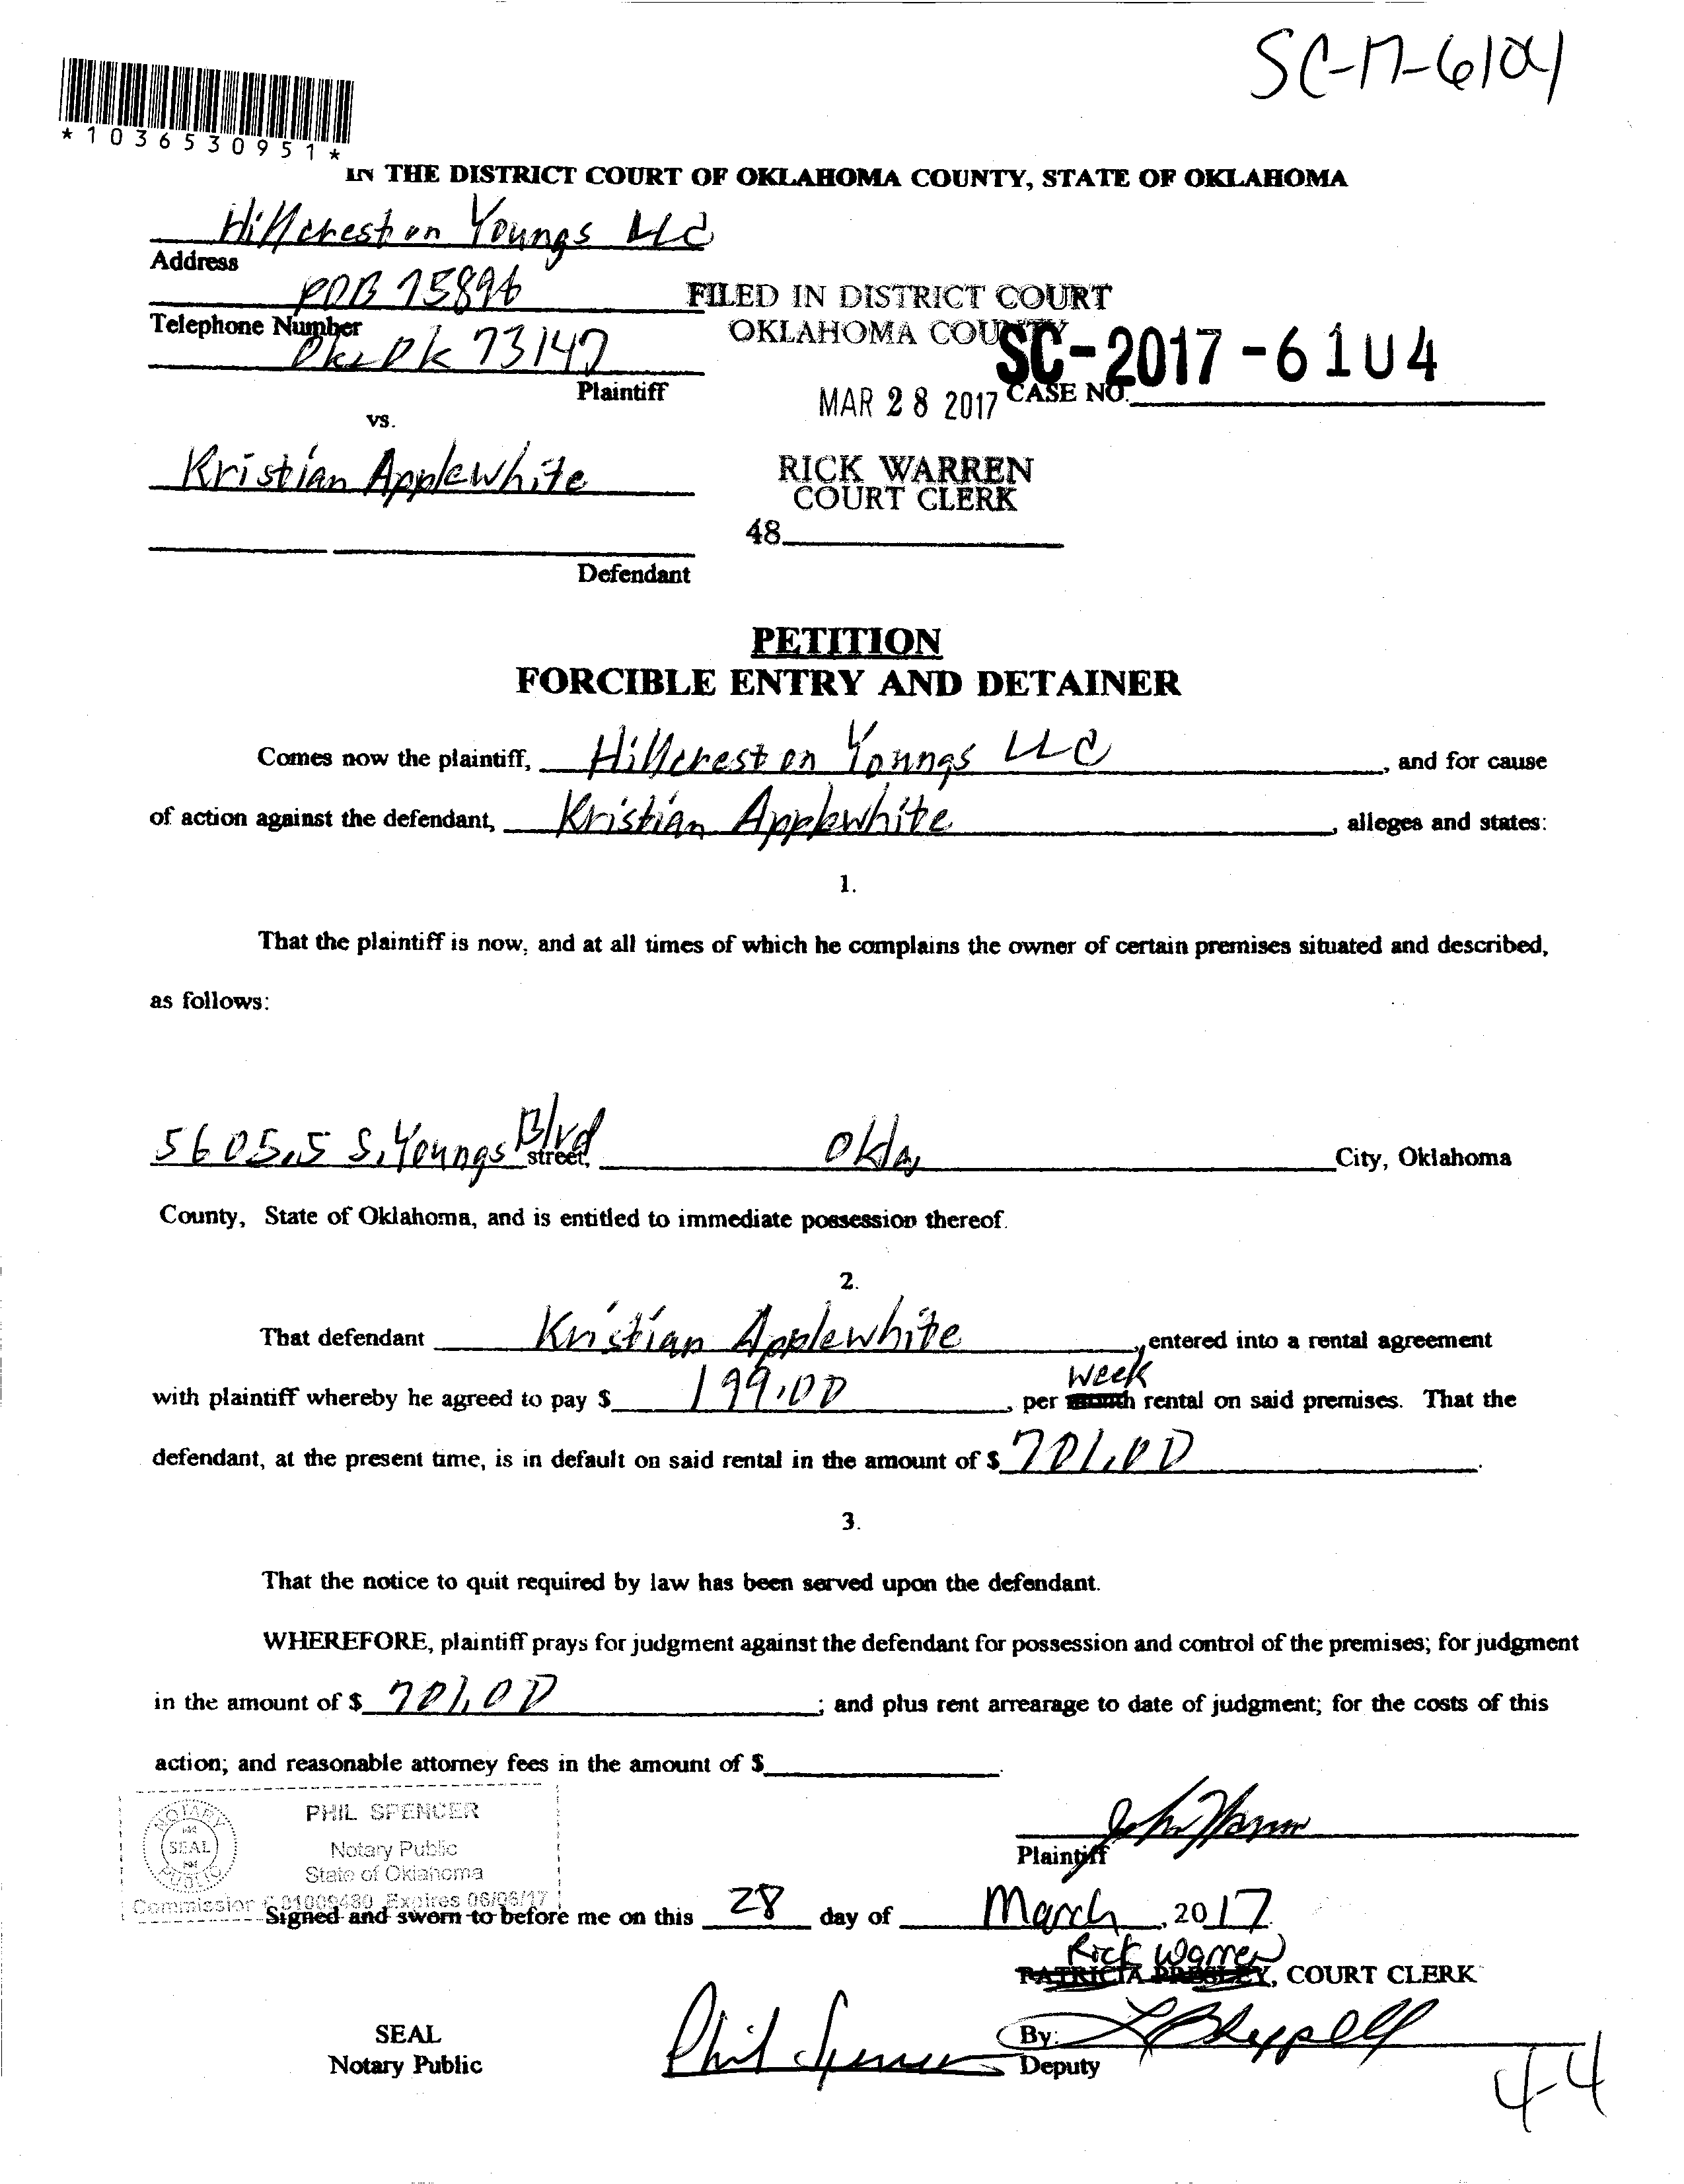 SC-17-6104
*1036530951*
IN THE DISTRICT COURT OF OKLAHOMA COUNTY, STATE OF OKLAHOMA
Hillcrest on Youngs LLC
Address
POB 75896
FILED IN DISTRICT COURT
OKLAHOMA COUNTY
Telephone Number
Okc Ok 73147
SC-2017-6104
Plaintiff
MAR 28 2017
CASE NO.
vs.
Kristian Applewhite
RICK WARREN
COURT CLERK
48
Defendant
PETITION
FORCIBLE ENTRY AND DETAINER
Comes now the plaintiff, Hillcrest on Youngs LLC, and for cause
of action against the defendant, Kristian Applewhite, alleges and states:
1.
That the plaintiff is now, and at all times of which he complains the owner of certain premises situated and described,
as follows:
5605.5 S. Youngs Blvd street, Okla, City, Oklahoma
County, State of Oklahoma, and is entitled to immediate possession thereof.
2.
That defendant Kristian Applewhite, entered into a rental agreement
week
with plaintiff whereby he agreed to pay $ 199.00, per month rental on said premises. That the
defendant, at the present time, is in default on said rental in the amount of $ 701.00.
3.
That the notice to quit required by law has been served upon the defendant.
WHEREFORE, plaintiff prays for judgment against the defendant for possession and control of the premises; for judgment
in the amount of $ 701.00; and plus rent arrearage to date of judgment; for the costs of this
action; and reasonable attorney fees in the amount of $
NOTARY
SEAL
PUBLIC
PHIL SPENCER
Notary Public
State of Oklahoma
Commission # 01009480 Expires 06/06/17
Plaintiff
Signed and sworn to before me on this 28 day of March, 2017.
Rick Warren
PATRICIA PRESLEY, COURT CLERK
SEAL
Notary Public
Phil Spencer
By:
Deputy
4-4